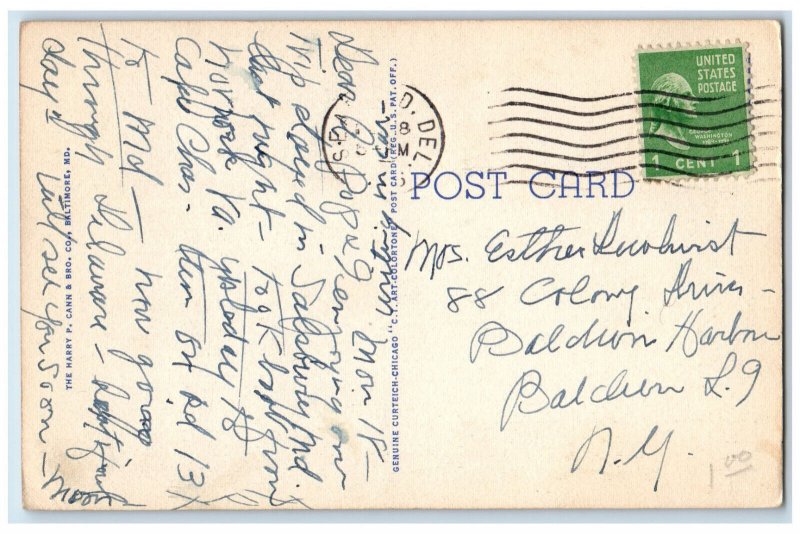 UNITED
STATES
POSTAGE
GEORGE
WASHINGTON
1 CENT 1
D. DEL
POST CARD
Mrs. Esther
88 Colony
Baldwin Harbor
Baldwin L.I
N.Y.
1.00
GENUINE CURTEICH-CHICAGO "C.T. ART-COLORTONE" POST CARD (REG. U.S. PAT. OFF.)
Mon 18-
Dear enjoying our
Trip stayed in Salsbury Md
last night- Took boat from
Norfolk Va. yesterday to
Cape Chas. then on Rd 13
to Md - now going
through Delaware -
day + will see you soon -
Mom
THE HARRY P. CANN & BRO. CO., BALTIMORE, MD.